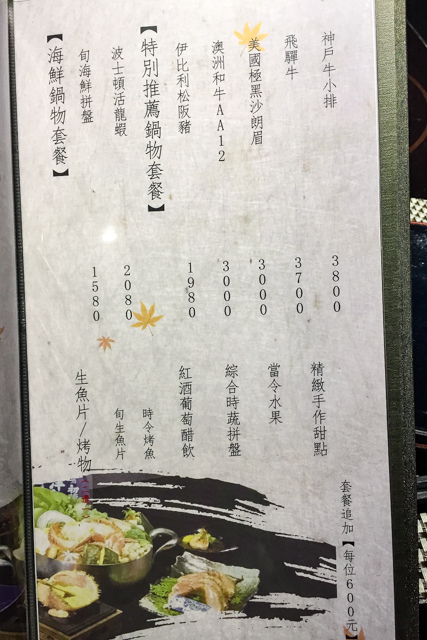 神戶牛小排 3800
飛驒牛 3700
美國極黑沙朗眉 3000
澳洲和牛AA12 3000
伊比利松阪豬 1980
【特別推薦鍋物套餐】
波士頓活龍蝦 2080
旬海鮮拼盤 1580
【海鮮鍋物套餐】
套餐追加【每位600元】
精緻手作甜點
當令水果
綜合時蔬拼盤
紅酒葡萄醋飲
時令烤魚
旬生魚片
生魚片/烤物